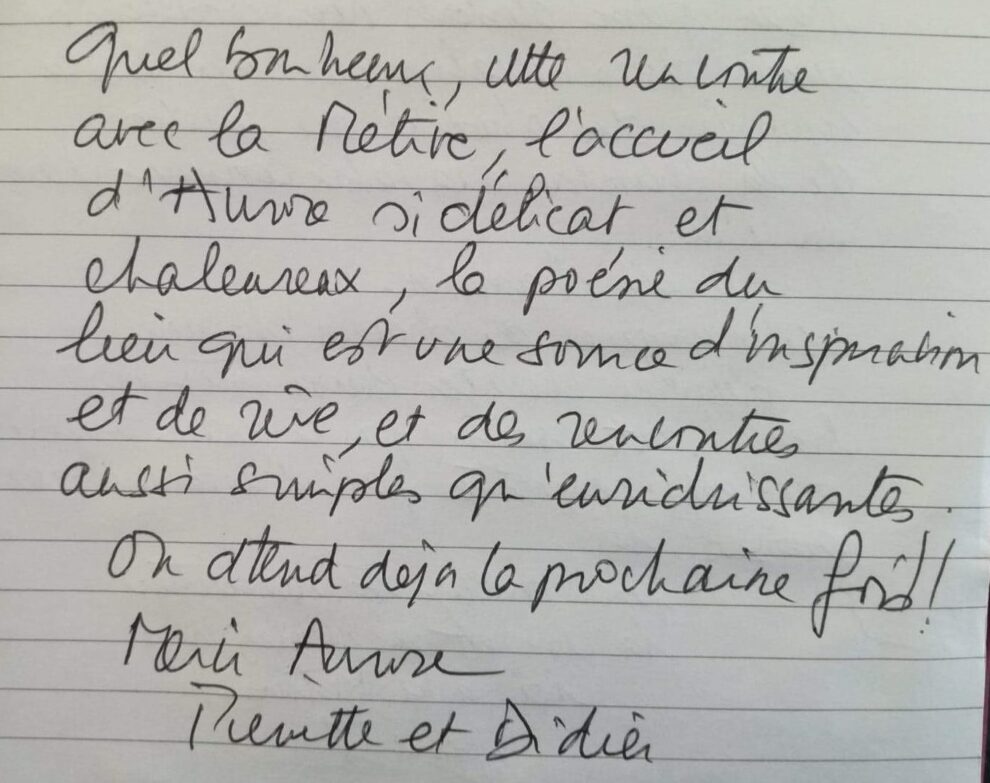 Quel bonheur, cette rencontre
avec la Métive, l'accueil
d'Aurore si délicat et
chaleureux, la poésie du
lieu qui est une source d'inspiration
et de rêve, et des rencontres
aussi simples qu'enrichissantes.
On attend déjà la prochaine fois!!
Merci Aurore
Pierrette et Didier